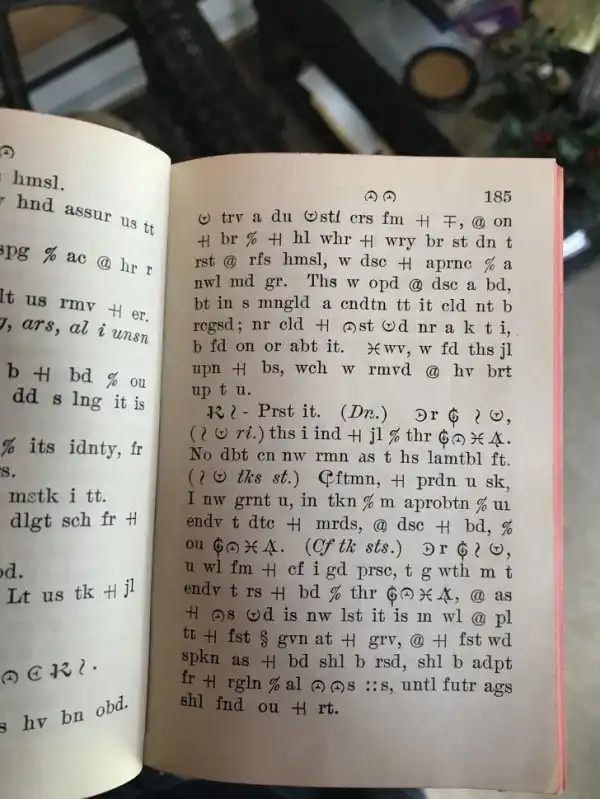 hmsl.
hnd assur us tt
spg % ac @ hr r
lt us rmv ⧺ er.
ars, al i unsn
b ⧺ bd % ou
dd s lng it is
% its idnty, fr
s.
mstk i tt.
dlgt sch fr ⧺
Lt us tk ⧺ jl
s hv bn obd.
185
trv a du crs fm ⧺ ∓, @ on
⧺ br % ⧺ hl whr ⧺ wry br st dn t
rst @ rfs hmsl, w dsc ⧺ aprnc % a
nwl md gr. Ths w opd @ dsc a bd,
bt in s mngld a cndtn tt it cld nt b
rcgsd; nr cld ⧺ nr a k t i,
b fd on or abt it. w fd ths jl
upn ⧺ bs, wch w rmvd @ hv brt
up t u.
- Prst it. (Dn.)
ths i ind ⧺ jl % thr
No dbt cn nw rmn as t hs lamtbl ft.
tks st.) ⧺ prdn u sk,
I nw grnt u, in tkn % m aprobtn % ur
endv t dtc ⧺ mrds, @ dsc ⧺ bd, %
ou (Cf tk sts.)
u wl fm ⧺ cf i gd prsc, t g wth m t
endv t rs ⧺ bd % thr @ as
⧺ is nw lst it is m wl @ pl
tt ⧺ fst § gvn at ⧺ grv, @ ⧺ fst wd
spkn as ⧺ bd shl b rsd, shl b adpt
fr ⧺ rgln % al ::s, untl futr ags
shl fnd ou ⧺ rt.